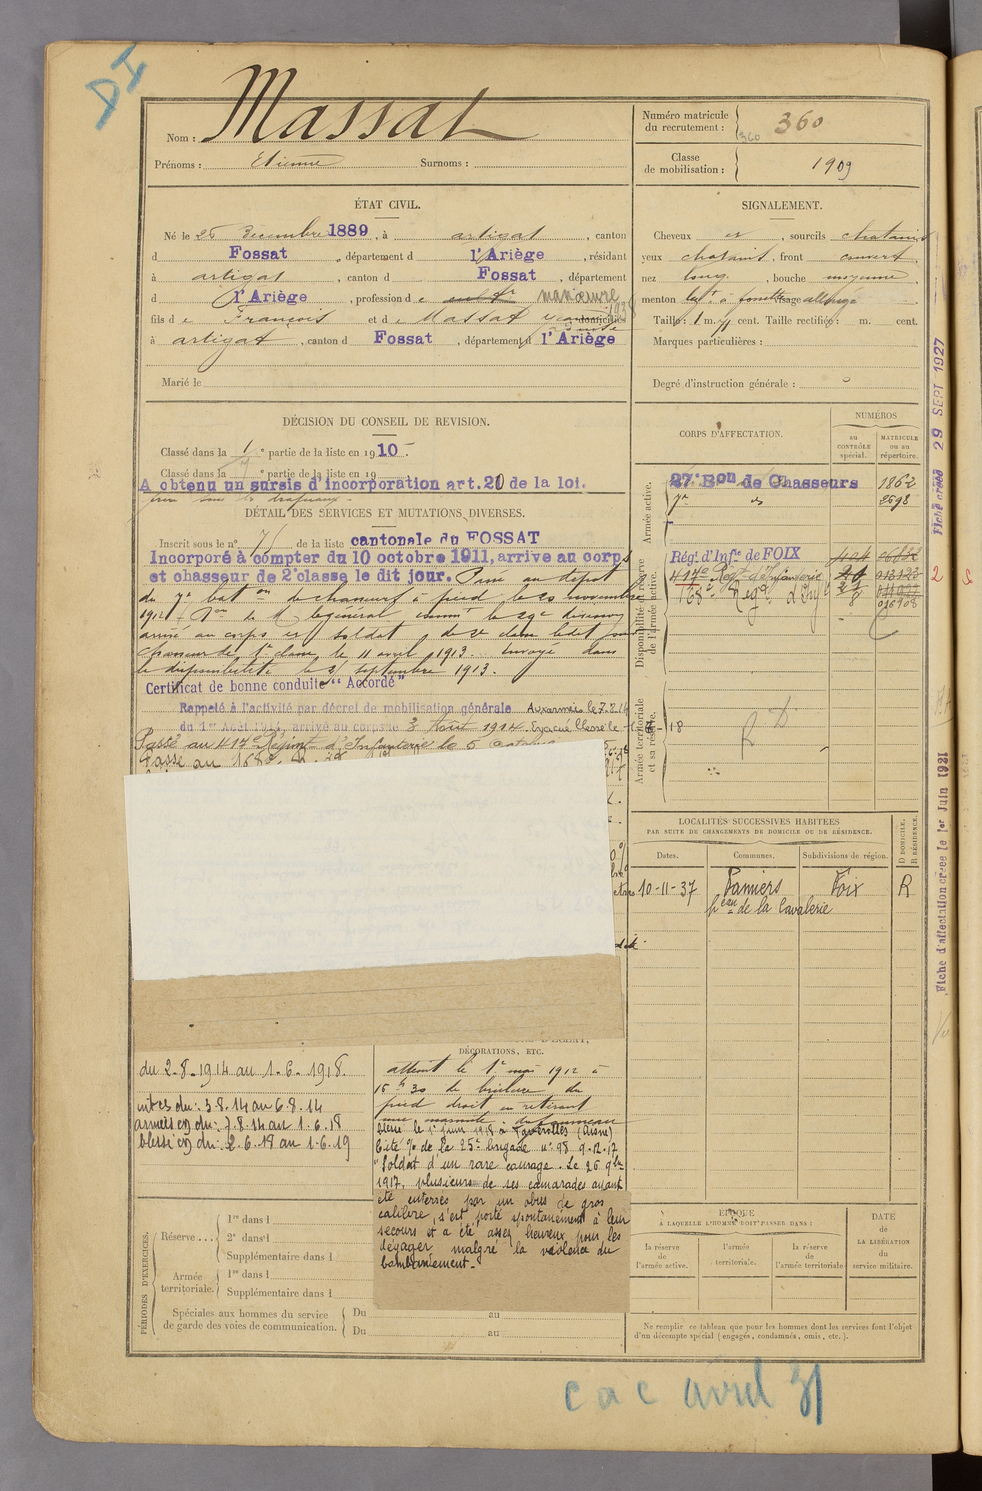 DI
Nom : Massat
Prénoms : Etienne Surnoms :
Numéro matricule du recrutement : 360
360
Classe de mobilisation : 1909
ÉTAT CIVIL.
Né le 26 Décembre 1889, à artigat, canton
d Fossat, département d l'Ariège, résidant
à artigat, canton d Fossat, département
d l'Ariège, profession d e cult manœuvre
1938
fils d e François et d e Massat domiciliés
à artigat, canton d Fossat, département d l'Ariège
Marié le
SIGNALEMENT.
Cheveux et, sourcils chatains
yeux chatains, front couvert,
nez long, bouche moyenne
menton à fossette visage allongé
Taille : 1 m. 71 cent. Taille rectifiée : m. cent.
Marques particulières :
Degré d'instruction générale :
DÉCISION DU CONSEIL DE REVISION.
Classé dans la 1re partie de la liste en 1910.
Classé dans la e partie de la liste en 19
A obtenu un sursis d'incorporation art. 20 de la loi.
frère sous les drapeaux.
DÉTAIL DES SERVICES ET MUTATIONS DIVERSES.
Inscrit sous le n° 75 de la liste cantonale du FOSSAT
Incorporé à compter du 10 octobre 1911, arrive au corps
et chasseur de 2e classe le dit jour. Passé au dépôt
du 7e bat on de chasseurs à pied le 20 novembre
1912
arrivé au corps et soldat de 2e classe le dit jour
chasseur de 1e classe le 11 avril 1913. Envoyé dans
la disponibilité le 27 septembre 1913.
Certificat de bonne conduite "Accordé"
Rappelé à l'activité par décret de mobilisation générale Aux armées le 7.8.14
du 1er Août 1914, arrivé au corps le 3 Août 1914. Evacué blessé le 1-6-18
Passé au 417e Régiment d'Infanterie le 5 octobre
Passé au 168e R.
CORPS D'AFFECTATION.
NUMÉROS
AU CONTRÔLE spécial.
MATRICULE ou au répertoire.
Armée active.
27e Bon de Chasseurs 1862
7e d° 2598
Disponibilité et réserve de l'armée active.
Rég.t d'Inf.ie de FOIX
417e Régt d'Infanterie
168e Regt d'Infie
8 016908
Armée territoriale et sa réserve.
R D
LOCALITÉS SUCCESSIVES HABITÉES
PAR SUITE DE CHANGEMENTS DE DOMICILE OU DE RÉSIDENCE.
Dates.
Communes.
Subdivisions de région.
D DOMICILE.
R RÉSIDENCE.
10-11-37 Pamiers Foix R
h eau de la Cavalerie
du 2-8-1914 au 1-6-1918.
int es du : 3 8.14 au 6 8.14
armées du : 7.8.14 au 1.6.18
blessé du : 2.6.18 au 1.6.19
DÉCORATIONS, ETC.
atteint le 1r mai 1912 à
15 h 30 de brûlure du
pied droit en retirant
une marmite du fourneau
Blessé le 1er Juin 1918 à Faverolles (Aisne)
Cité % de la 25e brigade n° 98 9.12.17
"Soldat d'un rare courage. Le 26 9bre
1917, plusieurs de ses camarades ayant
été enterrés par un obus de gros
calibre, s'est porté spontanément à leur
secours et a été assez heureux pour les
dégager malgré la violence du
bombardement.
PÉRIODES D'EXERCICES.
Réserve....
1re dans l
2e dans l
Supplémentaire dans l
Armée territoriale.
1re dans l
Supplémentaire dans l
Spéciales aux hommes du service de garde des voies de communication.
Du au
Du au
ÉPOQUE
À LAQUELLE L'HOMME DOIT PASSER DANS :
la réserve de l'armée active.
l'armée territoriale.
la réserve de l'armée territoriale
DATE de LA LIBÉRATION du service militaire.
Ne remplir ce tableau que pour les hommes dont les services font l'objet
d'un décompte spécial (engagés, condamnés, omis, etc.).
Fiche créée 29 SEPT 1927
2
Fiche d'affectation créée le 1er Juin 1921
c a c avril 31